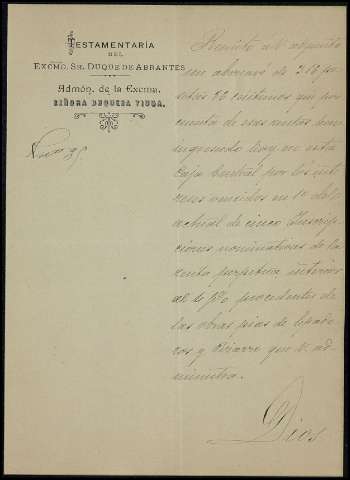 TESTAMENTARÍA
DEL
EXCMO. SR. DUQUE DE ABRANTES
Admón. de la Excma.
SEÑORA DUQUESA VIUDA.
Remito a V. adjunto
un abonaré de 318 pe
setas 82 centimos que por
cuenta de esas rentas han
ingresado hoy en esta
Caja Central por los inte
reses vencidos en 1º del
actual de cinco Inscrip
ciones nominativas de la
renta perpetua interior
al 4 p% procedentes de
las obras pias de
y que V. ad
ministra.
Dios